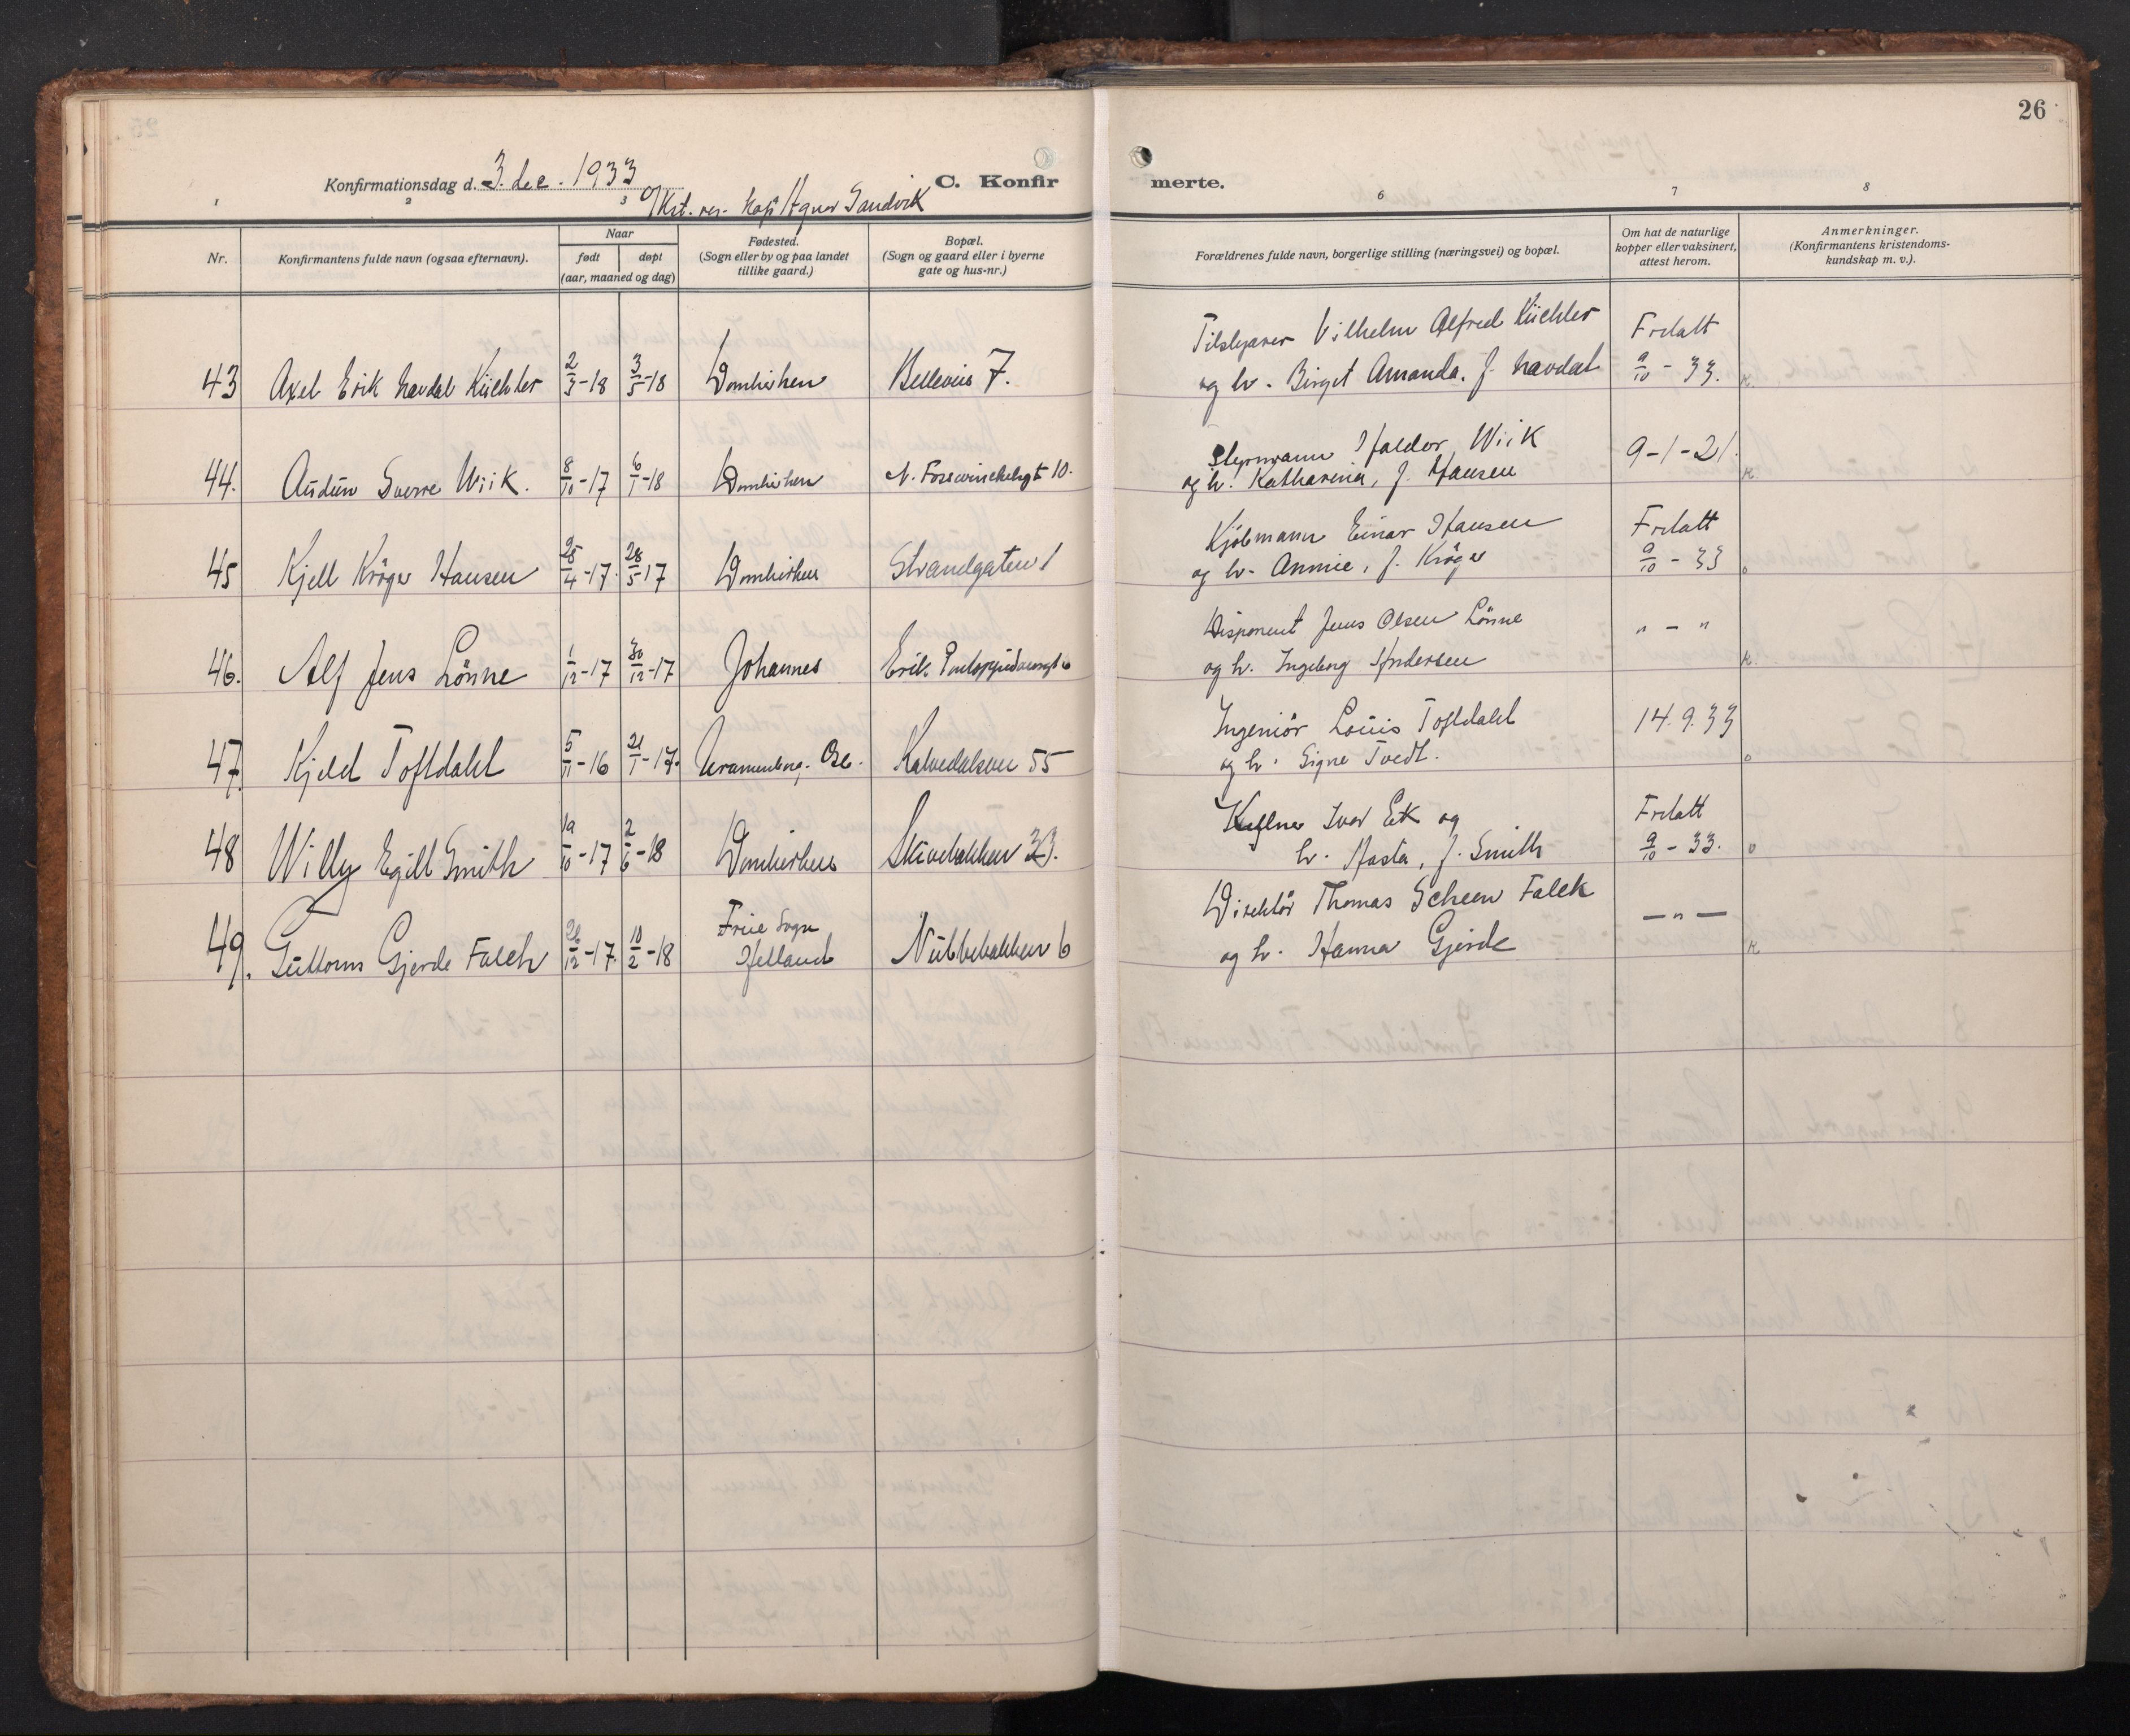 26
Konfirmationsdag d. 3. dec. 1933
C. Konfirmerte.
v/ Kst. res. kap. Hagnar Sandvik
1 2 3 6 7 8
Nr. Konfirmantens fulde navn (ogsaa efternavn). Naar født døpt (aar, maaned og dag) Fødested. (Sogn eller by og paa landet tillike gaard.) Bopæl. (Sogn og gaard eller i byerne gate og hus-nr.) Forældrenes fulde navn, borgerlige stilling (næringsvei) og bopæl. Om hat de naturlige kopper eller vaksinert, attest herom. Anmerkninger. (Konfirmantens kristendomskundskap m. v.).
Tilskjærer Vilhelm Alfred Küchler Fritatt
43 Axel Erik Navdal Küchler 2/3-18 3/5-18 Domkirken Bellevue 7. og h. Birgit Amanda, f. Navdal 9/10 - 33. K.
Styrmann Haldor Wiik 9-1-21.
44. Audun Sverre Wiik. 8/10-17 6/1-18 Domkirken N. Fosswinckelsgt 10. og h. Katharina, f. Hansen K
Kjøbmann Einar Hansen Fritatt
45 Kjell Krøger Hansen 25/4-17. 28/5-17 Domkirken Strandgaten 1 og h. Annie, f. Krøger 9/10 - 33 o
Disponent Jens Olsen Lönne " - "
46. Alf Jens Lönne 1/12-17 30/12-17 Johannes Erik Pontoppidansgt 6 og h. Ingeborg Andersen K.
Ingeniør Louis Toftdahl 14.9.33
47. Kjeld Toftdahl 5/11-16 21/1-17. Uranienborg. Oslo. Kalvedalsvei 55 og h. Signe Tvedt. o
Kelner Ivar Eek og Fritatt
48 Willy Egill Smith 19/10-17 2/6-18 Domkirken Skivebakken 33. h. Hasta, f. Smith 9/10 - 33. o
Direktør Thomas Scheen Falck — " —
49. Guttorm Gjerde Falch 26/12-17. 10/2-18 Frue Sogn Jylland Nubbebakken 6 og h. Hanna Gjerde K